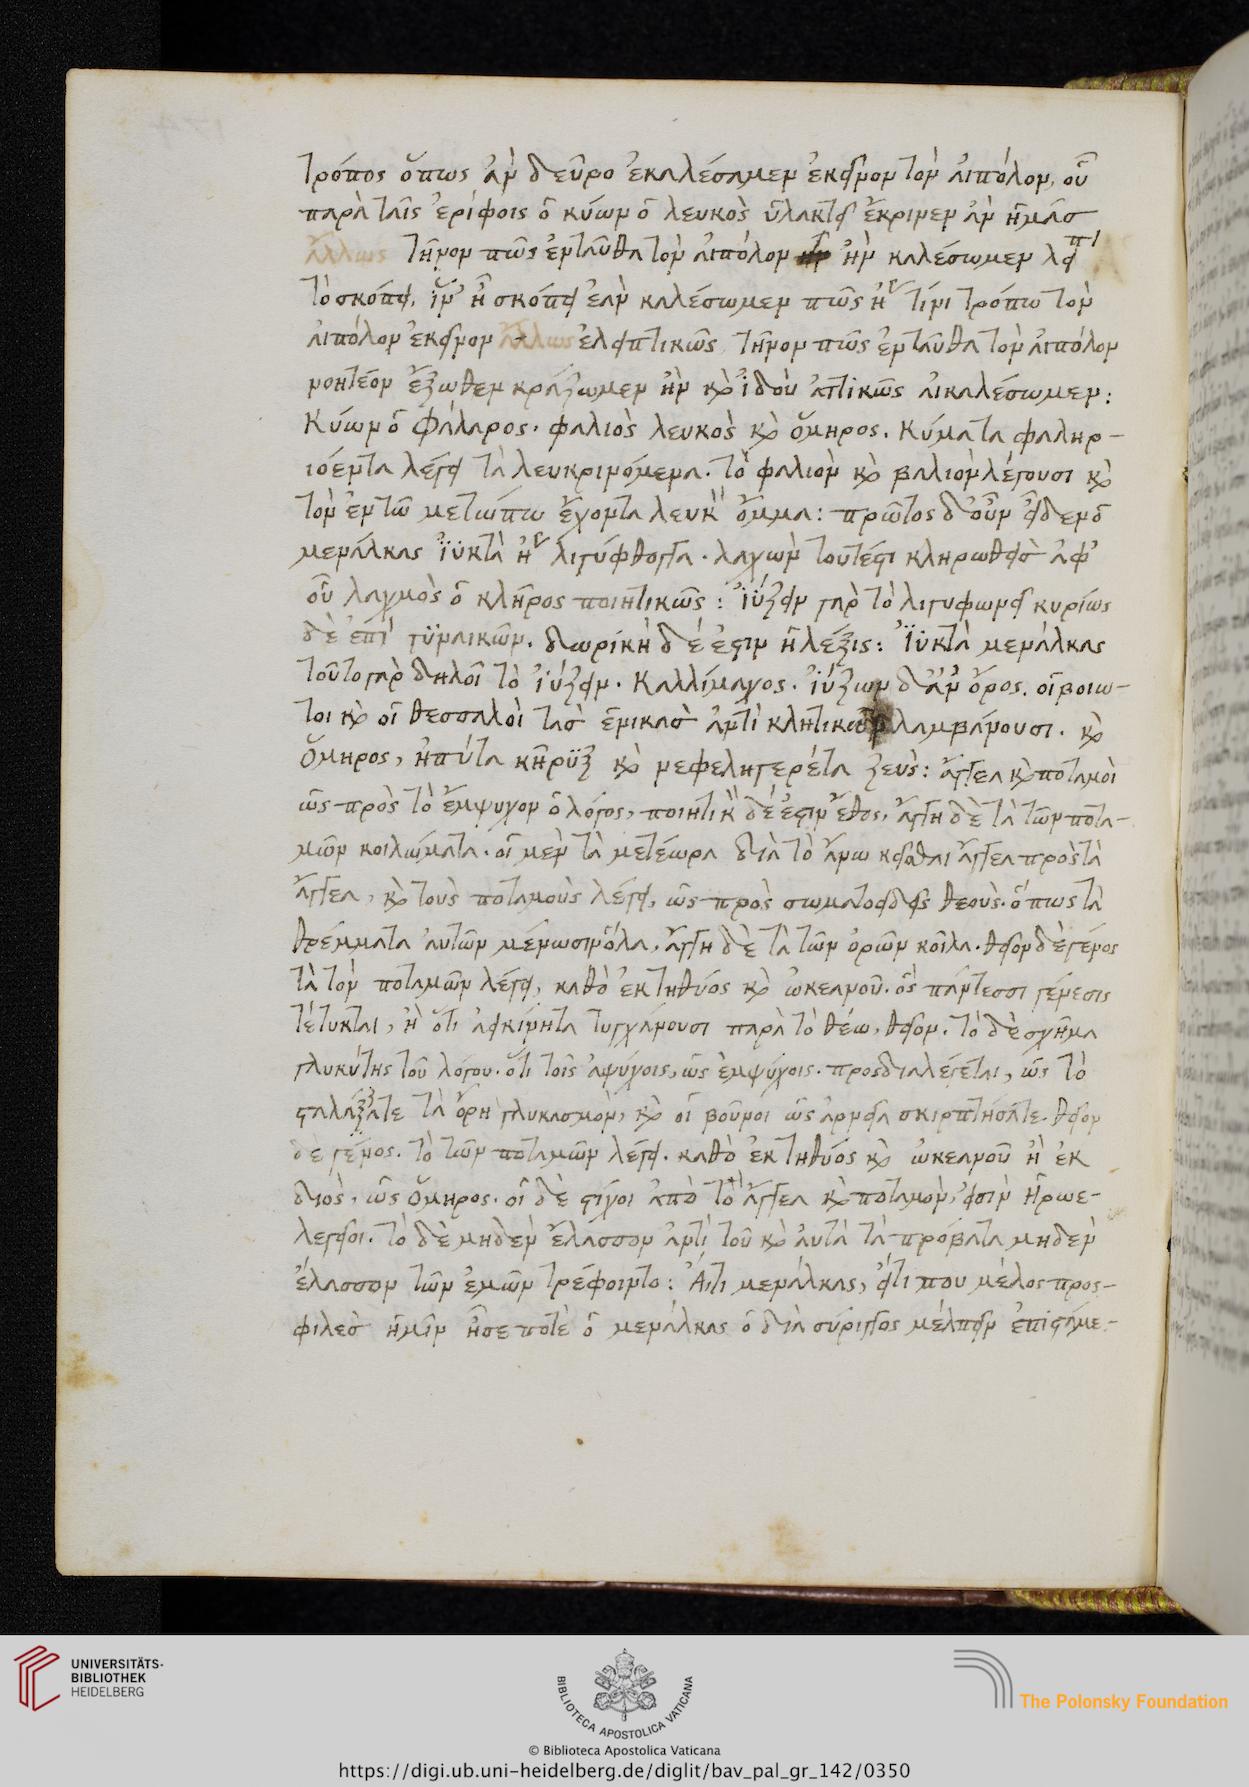 τρόπος ὅπως ἂν δεῦρο ἐκαλέσαμεν ἐκεῖνον τὸν αἰπόλον, οὗ
παρὰ ταῖς ἐρίφοις ὁ κύων ὁ λευκὸς ὑλακτεῖ ἔκρινεν ἂν ἡμᾶσ
ἄλλως τῆνον πῶς ἐνταῦθα τὸν αἰπόλον ἢν καλέσωμεν λείπει
τὸ σκόπει, ἵν' ᾖ σκόπει ἐὰν καλέσωμεν πῶς ἤγουν τίνι τρόπω τὸν
αἰπόλον ἐκεῖνον ἄλλως ἐλειπτικῶς τῆνον πῶς ἐνταῦθα τὸν αἰπόλον
νοητέον ἔξωθεν κράξωμεν ἢν καὶ ἰδοὺ ἀττικῶς αἰκαλέσωμεν:
Κύων ὁ Φάλαρος. φαλιὸς λευκὸς καὶ ὅμηρος. Κύματα φαληρ-
ιόεντα λέγει τὰ λευκρινόμενα. τὸ φαλιὸν καὶ βαλιὸν λέγουσι καὶ
τὸν ἐν τῶ μετώπω ἔχοντα λευκὸν ὄμμα: πρῶτος δ' οὖν
μενάλκας ἰϋκτὰ ἤγουν λιγύφθογγα. λαχὼν τουτέστι κληρωθεὶσ ἀφ'
οὗ λαχμὸς ὁ κλῆρος ποιητικῶς: ἰΰζειν γὰρ τὸ λιγυφωνεῖ κυρίως
δὲ ἐπὶ γϋναικῶν. δωρίκὴ δέ ἐστιν ἡ λέξις: Ἰϋκτὰ μενάλκας
τοῦτο γὰρ δηλοῖ τὸ ἰΰζειν. Καλλίμαχος. ἰύζων δ' ἀν' ὄρος. οἱ βοιω-
τοι καὶ οἱ θεσσαλοὶ τασ ἑνικασ ἀντὶ κλητικῶν λαμβάνουσι. καὶ
Ὅμηρος, ἠπύτα κῆρϋξ καὶ νεφεληγερέτα ζευς: ἄγγεα καὶ ποταμοὶ
ὡς πρὸς τὸ ἔμψυχον ὁ λόγος, ποιητικὸν δέ ἐστιν ἔθος, ἄγγη δὲ τὰ τῶν ποτα-
μῶν κοιλώματα. οἱ μὲν τὰ μετέωρα διὰ τὸ ἄνω κεῖσθαι ἄγγεα πρὸς τὰ
ἄγγεα, καὶ τοὺς ποταμοὺς λέγει, ὡς πρὸς σωματοειδεῖς θεοὺς. ὅπως τὰ
θρέμματα αυτῶν μένωσιν ὅλα, ἄγγη δὲ τὰ τῶν ὀρῶν κοῖλα. θεῖον δὲ γένος
τὰ τὸν ποταμῶν λέγει, καθὸ ἐκ τηθύος καὶ ὠκεανοῦ. ὃς πάντεσσι γένεσις
τέτυκται, ἢ ὅτι ἀεικίνητα τυγχάνουσι παρὰ τὸ θέω, θεῖον. τὸ δὲ σχῆμα
γλυκύτης τοῦ λόγου. ὅτι τοῖς ἀψύχοις, ὡς ἐμψύχοις. προσδιαλέγεται, ὡς τὸ
σταλάξατε τὰ ὄρη γλυκασμὸν, καὶ οἱ βουνοι ὡς ἀρνεῖα σκιρπτήσατε. θεῖον
δὲ γένος. τὸ τῶν ποταμῶν λέγει. καθὸ ἐκ τηθύος καὶ ὠκεανοῦ ἢ ἐκ
διὸς, ὡς ὅμηρος. οἱ δὲ στίχοι ἀπὸ τὸ ἄγγεα καὶ ποταμον, εἰσὶν ἡρωε-
λεγεῖοι. τὸ δὲ μηδὲν ἔλασσον ἀντὶ τοῦ καὶ ἀυτὰ τὰ πρόβατα μηδεν
ἐλασσον τῶν ἐμῶν τρέφοιντο: Ἄιτι μενάλκας, εἴτι που μέλος προσ-
φιλεσ ἡμῖν ᾖσε ποτὲ ὁ μενάλκας ὁ διὰ σύριγγος μέλπειν ἐπιστάμε-
UNIVERSITÄTS-
BIBLIOTHEK
HEIDELBERG
BIBLIOTECA APOSTOLICA VATICANA
The Polonsky Foundation
© Biblioteca Apostolica Vaticana
https://digi.ub.uni-heidelberg.de/diglit/bav_pal_gr_142/0350